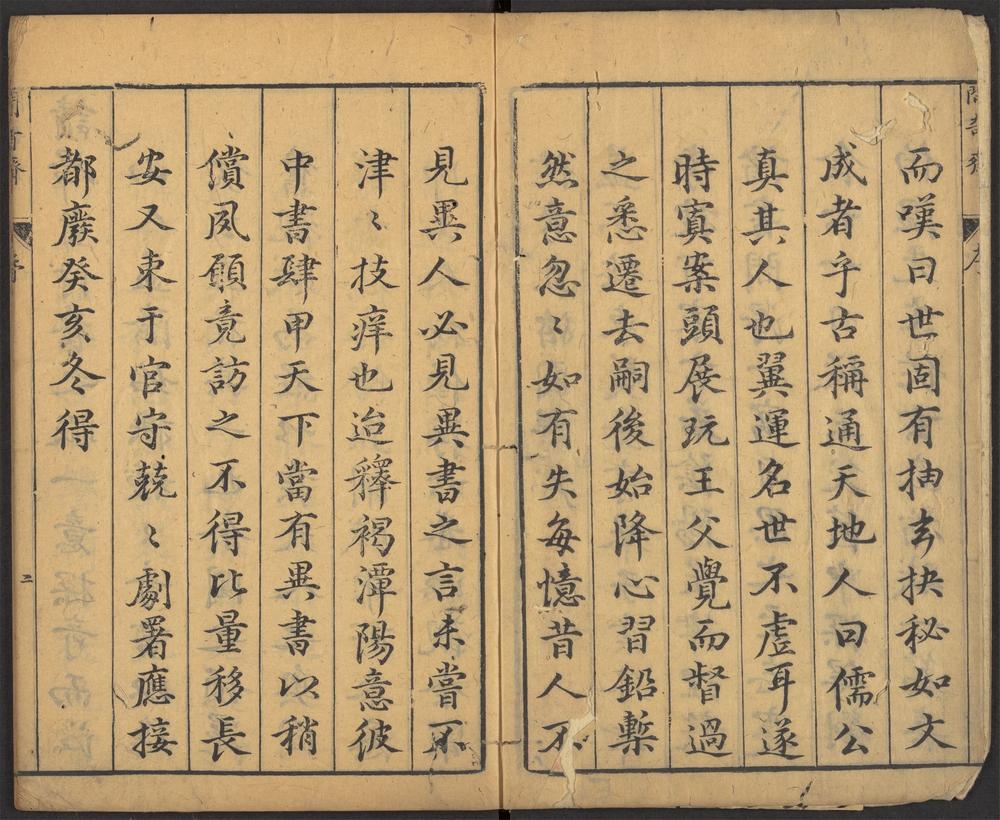 而嘆曰世固有抽玄抉秘如文
成者乎古稱通天地人曰儒公
真其人也翼運名世不虛耳遂
時寘案頭展玩王父覺而督過
之悉遷去嗣後始降心習鉛槧
然意忽〻如有失每憶昔人不
見異人必見異書之言未嘗不
津〻技痒也迨釋褐潭陽意彼
中書肆甲天下當有異書以稍
償夙願竟訪之不得比量移長
安又束于官守兢〻劇署應接
都廢癸亥冬得
三